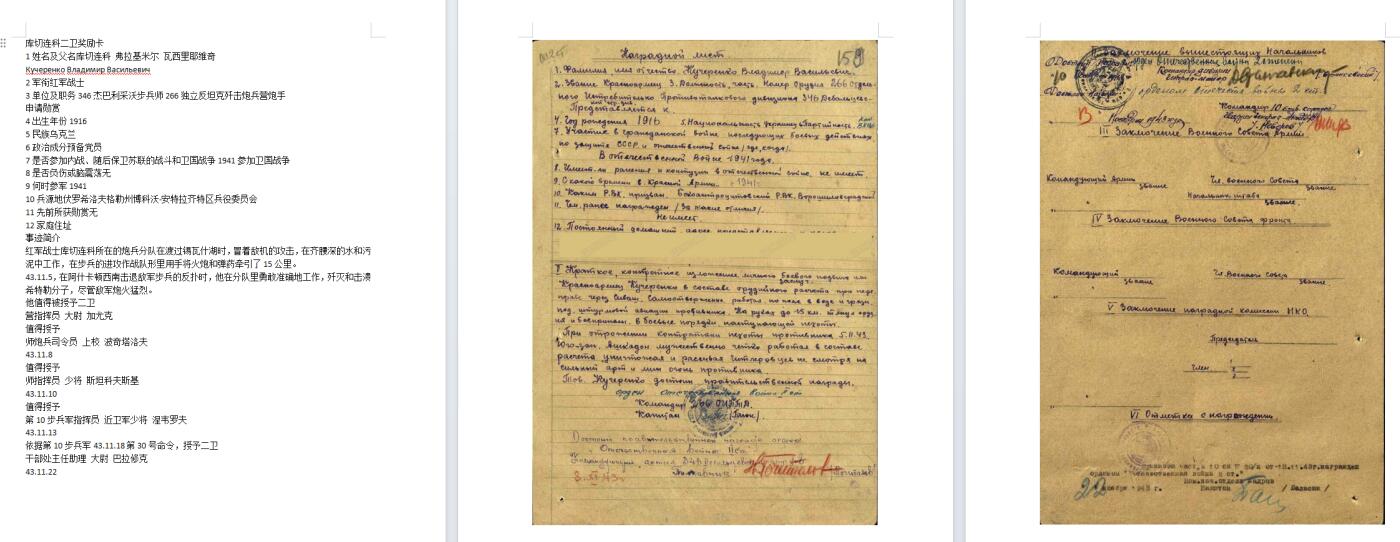 库切连科二卫奖励卡
1 姓名及父名库切连科 弗拉基米尔 瓦西里耶维奇
Кучеренко Владимир Васильевич
2 军衔红军战士
3 单位及职务 346 杰巴利采沃步兵师 266 独立反坦克歼击炮兵营炮手
申请勋赏
4 出生年份 1916
5 民族乌克兰
6 政治成分预备党员
7 是否参加内战、随后保卫苏联的战斗和卫国战争 1941 参加卫国战争
8 是否负伤或脑震荡无
9 何时参军 1941
10 兵源地伏罗希洛夫格勒州博科沃-安特拉齐特区兵役委员会
11 先前所获勋赏无
12 家庭住址
事迹简介
红军战士库切连科所在的炮兵分队在渡过锡瓦什湖时，冒着敌机的攻击，在齐腰深的水和污
泥中工作，在步兵的进攻作战队形里用手将火炮和弹药牵引了 15 公里。
43.11.5，在阿什卡顿西南击退敌军步兵的反扑时，他在分队里勇敢准确地工作，歼灭和击溃
希特勒分子，尽管敌军炮火猛烈。
他值得被授予二卫
营指挥员 大尉 加尤克
值得授予
师炮兵司令员 上校 波奇塔洛夫
43.11.8
值得授予
师指挥员 少将 斯坦科夫斯基
43.11.10
值得授予
第 10 步兵军指挥员 近卫军少将 涅韦罗夫
43.11.13
依据第 10 步兵军 43.11.18 第 30 号命令，授予二卫
干部处主任助理 大尉 巴拉修克
43.11.22
Наградной лист
1. Фамилия, имя отчество. Кучеренко Владимир Васильевич.
2. Звание Красноармеец 3. Должность, часть. Номер Орудия 266 Отдель-
ного Истребительно Противотанкового дивизиона 346 Дебальцево-
Представляется к
4. Год рождения 1916 5. Национальность Украинец
7. Участие в гражданской войне последующих боевых действиях
по защите СССР и отечественной войне /где, когда/.
В отечественной Войне 1941 года.
8. Имеет ли ранения и контузии в отечественной войне. не имеет.
9. С какого времени в Красной Армии. 1941г.
10. Каким Р.В.К. призван. Р.В.К. Ворошиловградской
11. Чем ранее награжден /за какие отличия/.
Не имеет
12. Постоянный домашний адрес
I Краткое, конкретное изложение личного боевого подвига или
заслуг.
Красноармеец Кучеренко в составе орудийного расчета при пере-
праве через Сиваш. Самоотверженно работал по пояс в воде и грязи,
под штурмовой авиации противника. На руках до 15 км. тянул оруд-
ия и боеприпасы. В боевые порядки наступающей пехоты.
При отражении контратаки пехоты противника 5.11.43.
Юго-зап. Ашкадан мужественно четко работал в составе
расчета уничтожая и рассеивая гитлеровцев не смотря на
сильный арт и мин огонь противника.
Тов. Кучеренко достоин правительственной награды.
орден
Командир
Капитан
Достоин правительственной награды орден
Отечественной Войны
Заключение вышестоящих Начальников
Командир 10
III Заключение Военного Совета Армии.
Командующий Армии Чл. Военного Совета
звание звание
Начальник штаба
звание.
IV Заключение Военного Совета фронта
Командующий Чл. Военного Совета
звание звание
V Заключение наградной комиссии НКО.
Председатель
Член 1
2
VI Отметка о награждении.
от 18.11.43г. награжден
орденом "Отечественная война 2 ст."
Пом. нач. отдела кадров
22 1943 г. Капитан